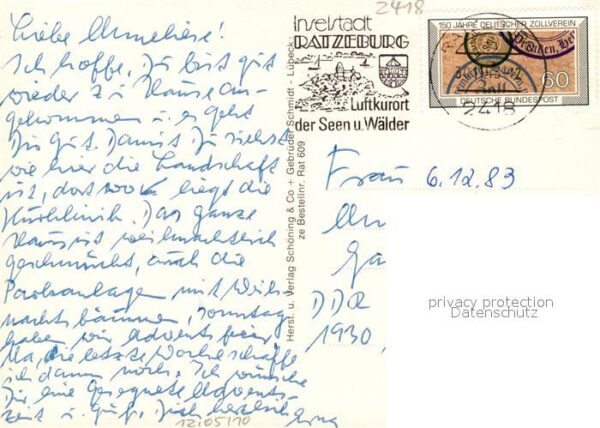 Liebe Anneliese!
Ich hoffe, Du bist gut
wieder zu Hause an-
gekommen u. es geht
Dir gut. Damit Du siehst
wie hier die Landschaft
ist, dort wo liegt die
Kurklinik. Das ganze
Haus ist weihnachtlich
geschmückt, auch die
Parkanlagen mit Weih-
nachtsbäumen, Sonntag
haben wir Adventsfeier
Na, die letzte Woche schaffe
ich dann noch. Ich wünsche
Dir eine gesegnete Advents-
zeit u. grüße Dich herzlich Erna
12/05/10
Herst. u. Verlag Schöning & Co + Gebrüder Schmidt - Lübeck
ze Bestellnr. Rat 609
2418
Inselstadt
RATZEBURG
Luftkurort
der Seen u. Wälder
150 JAHRE DEUTSCHER ZOLLVEREIN
60
DEUTSCHE BUNDESPOST
2418
Frau 6.12.83
An
Ga
DDR
1930
privacy protection
Datenschutz